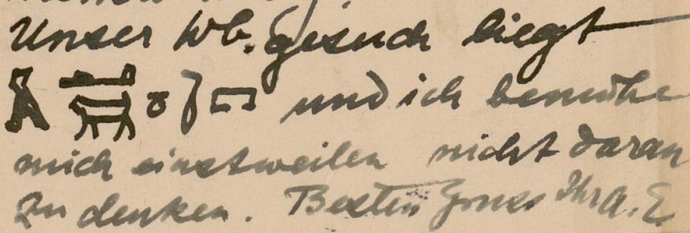 Unser Wb. gesuch liegt
und ich bemühe
mich einstweilen nicht daran
zu denken. Besten Gruss Ihr A. E.